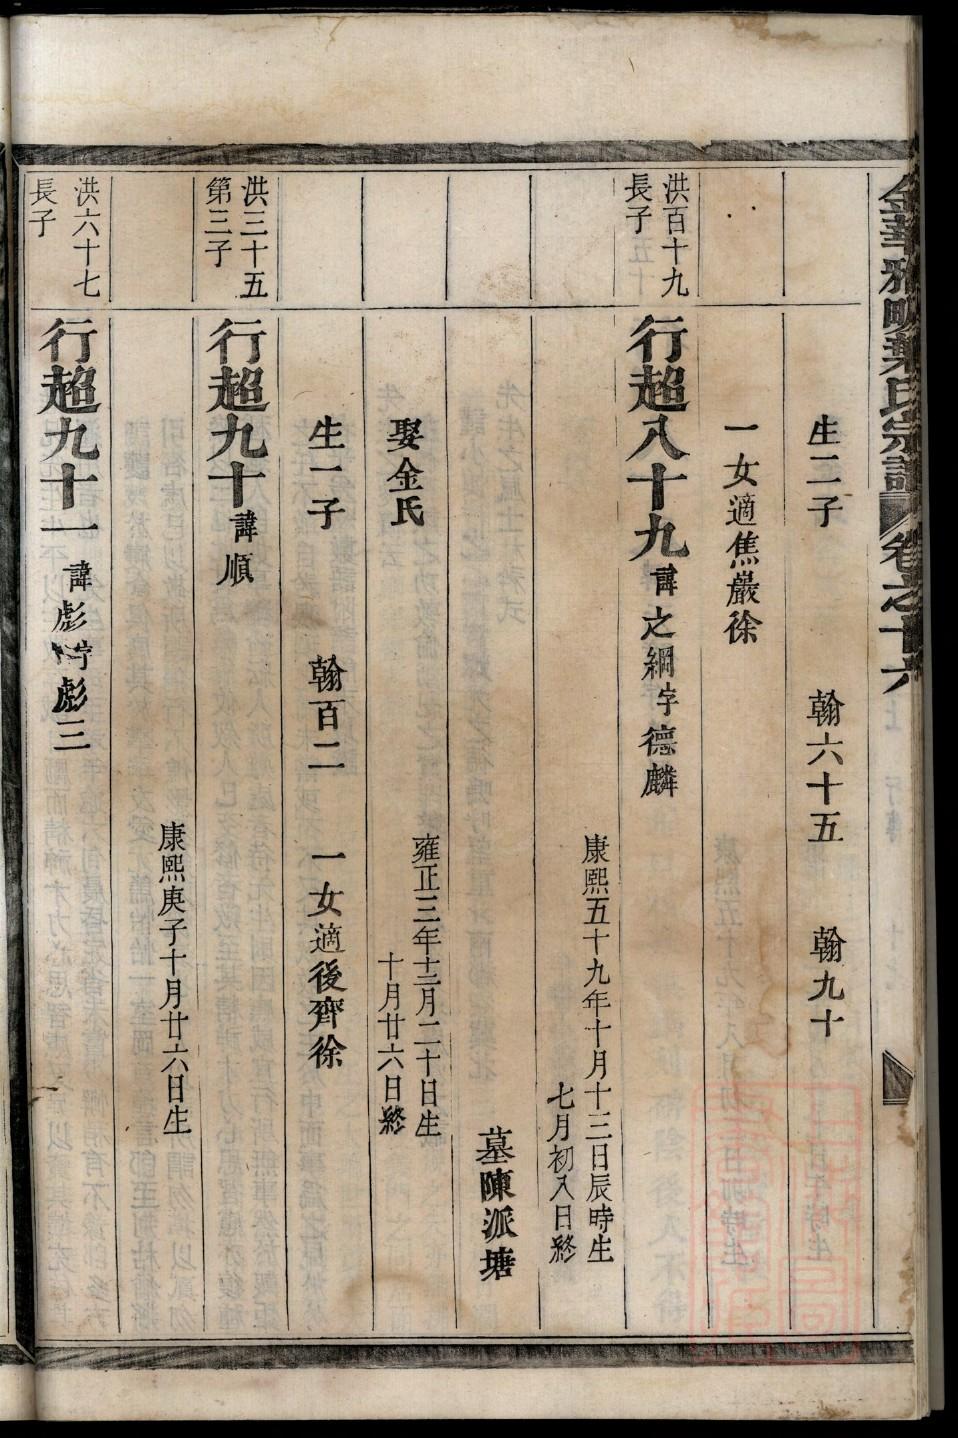 金華雅畈葉氏宗譜 卷之十六
生二子 翰六十五 翰九十
一女適焦巖徐
洪百十九
長子
行超八十九 諱之綱字德麟
康熙五十九年十月十三日辰時生
七月初八日終
墓陳派塘
雍正三年十二月二十日生
娶金氏
十月廿六日終
生一子 翰百二 一女適後齊徐
洪三十五
第三子
行超九十 諱順
康熙庚子十月廿六日生
洪六十七
長子
行超九十一 諱彪行彪三